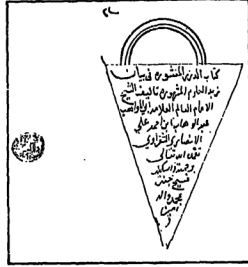 كتاب الدرر المنثورة في بيان
زبد العلوم المشهورة تأليف الشيخ
الامام العالم العلامة ابي المواهب
عبد الوهاب بن احمد علي
الانصاري الشعراوي
تغمده الله تعالى
برحمته واسكنه
فسيح جنته
بمحمد واله
امين